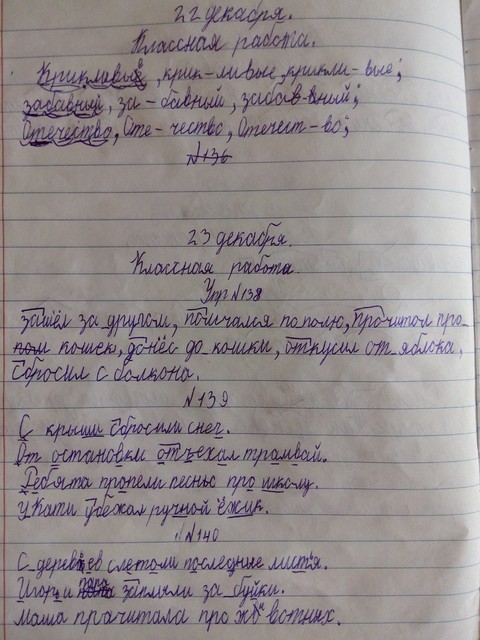 22 декабря.
Классная работа.
Крикливые, крик-ливые, крикли-вые;
забавный, за-бавный, забав-ный;
Отечество, Оте-чество, Отечест-во;
№136
23 декабря.
Классная работа.
Упр №138
Зашёл за другом, помчался по полю, Прочитал про
кошек, донёс до кошки, откусил от яблока,
Сбросил с болкона.
№139
С крыши сбросили снег.
От остановки отъехал трамвай.
Ребята пропели песнью про школу.
У Кати убежал ручной ёжик.
№140
С деревьев слетоли последние листья.
Игорь и папа заплыли за буйки.
Маша прачитала про животных.